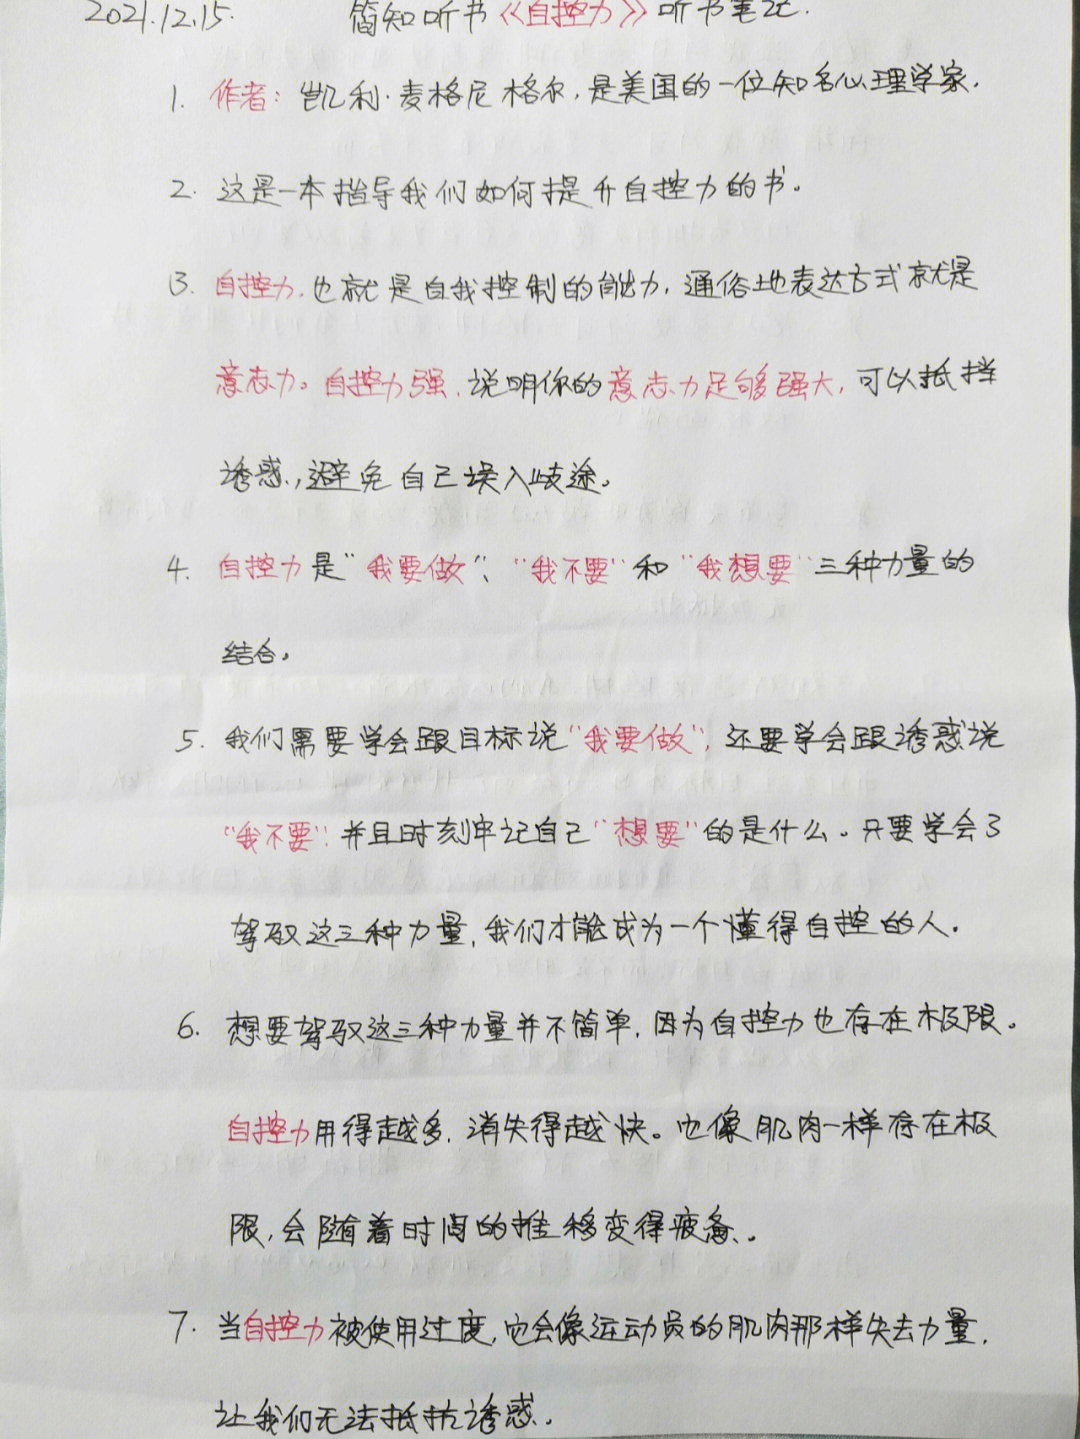 2021.12.15. 简知听书《自控力》听书笔记.
1. 作者：凯利·麦格尼格尔,是美国的一位知名心理学家.
2. 这是一本指导我们如何提升自控力的书。
3. 自控力.也就是自我控制的能力,通俗地表达方式就是
意志力。自控力强.说明你的意志力足够强大,可以抵挡
诱惑,避免自己误入歧途。
4. 自控力是“我要做”、“我不要”和“我想要”三种力量的
结合。
5. 我们需要学会跟目标说“我要做”,还要学会跟诱惑说
“我不要”.并且时刻牢记自己“想要”的是什么。只要学会了
驾驭这三种力量,我们才能成为一个懂得自控的人.
6. 想要驾驭这三种力量并不简单,因为自控力也存在极限。
自控力用得越多,消失得越快。也像肌肉一样存在极
限,会随着时间的推移变得疲惫。
7. 当自控力被使用过度,也会像运动员的肌肉那样失去力量,
让我们无法抵抗诱惑.